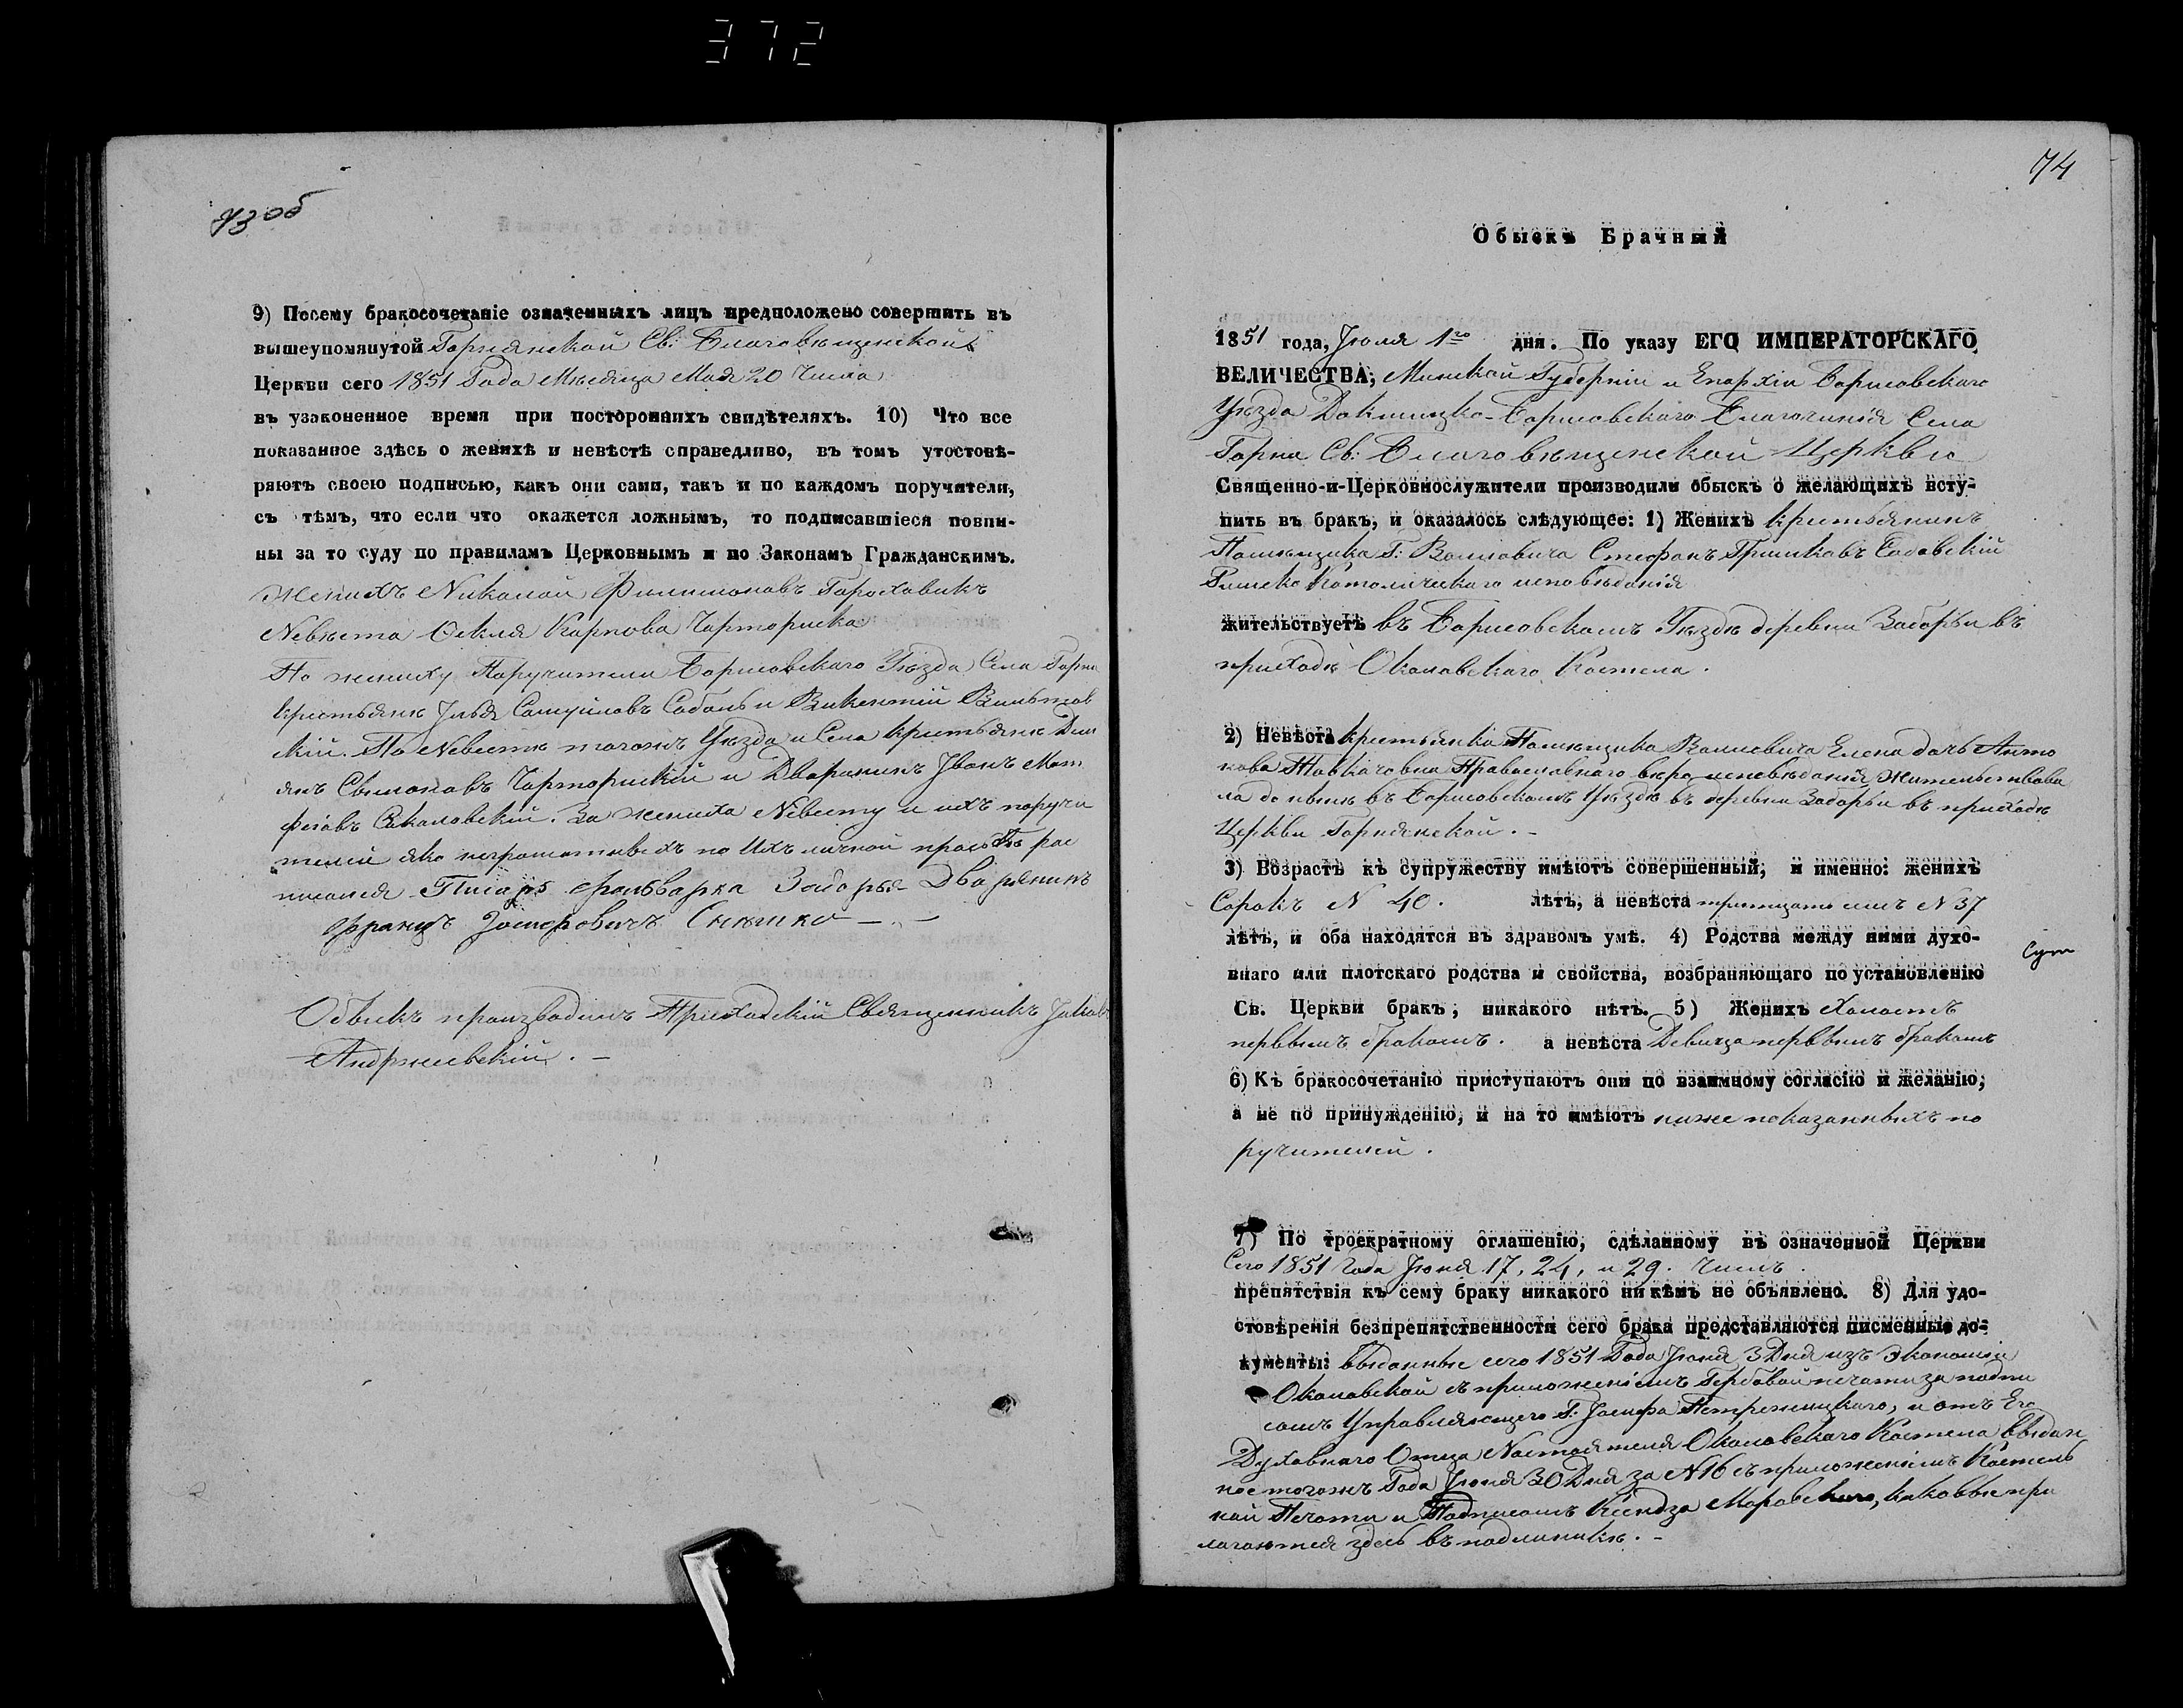 372
73об
9) Посему бракосочетаніе означенныхъ лицъ предположено совершить въ
вышеупомянутой Горнянской Св: Благовѣщенской
Церкви сего 1851 Года Мѣсяца Мая 20 Числа
въ узаконенное время при постороннихъ свидѣтеляхъ. 10) Что все
показанное здѣсь о женихѣ и невѣстѣ справедливо, въ томъ утостовѣ-
ряютъ своею подписью, какъ они сами, такъ и по каждомъ поручители,
съ тѣмъ, что если что окажется ложнымъ, то подписавшіеся повин-
ны за то суду по правиламъ Церковнымъ и по Законамъ Гражданскимъ.
женихъ Николай Филимоновъ Гороховикъ
Невѣста Карпова Чарториска
По жениху Поручители Борисовскаго Уѣзда Села Горна
крестьяне Илья Самуйловъ Соболь и Викентій
скій. По Невестѣ тогожъ Уѣзда и Села крестьяне Дем
янъ Чарторискій и Дворянинъ Иванъ Мат
феіовъ Сакаловскій. За жениха Невесту и ихъ поручи
телей яко неграмотныхъ по ихъ личной прозьбѣ рас
писался Писарь фольварка Заборья Дворянинъ
Францъ Іосифовичъ
Обыскъ производилъ Приходскій Священникъ Іаковъ
Андржеевскій. –
74
Обыскъ Брачный
1851 года, Іюля 1го дня. По указу ЕГО ИМПЕРАТОРСКАГО
ВЕЛИЧЕСТВА, Минской Губерніи и Епархіи Борисовскаго
Уѣзда Докшицко-Борисовскаго Благочинія Села
Горна Св: Благовѣщенской Церкви
Священно-и-Церковнослужители производили обыскъ о желающихъ всту-
пить въ бракъ, и оказалось слѣдующее: 1) Женихъ крестьянинъ
Помѣщика Г: Волловича Стефанъ Гришковъ Садовскій
Римско Католическаго исповѣданія
жительствуетъ въ Борисовскомъ Уѣздѣ деревни Заборьи въ
приходѣ Околовскаго Костела.
2) Невѣста крестьянка Помѣщика Воловича Елена дочь Анто
нова Православнаго вѣро исповѣданія жительствова
ла до нынѣ въ Борисовскомъ Уѣздѣ въ деревни Заборьи въ приходѣ
Церкви Горнянской. –
3) Возрастъ къ супружеству имѣютъ совершенный, и именно: женихъ
Сорокъ N 40. лѣтъ, а невѣста тритцать семъ N 37
лѣтъ, и оба находятся въ здравомъ умѣ. 4) Родства между ними духо-
внаго или плотскаго родства и свойства, возбраняющаго по установленію
Св. Церкви бракъ, никакого нѣтъ. 5) Женихъ холостъ
первымъ бракомъ. а невѣста Девица первымъ бракомъ
6) Къ бракосочетанію приступаютъ они по взаимному согласію и желанію,
а не по принужденію, и на то имѣютъ ниже показанныхъ по
ручителей.
7) По троекратному оглашенію, сдѣланному въ означенной Церкви
Сего 1851 Года Іюня 17, 24, и 29. Числъ.
препятствія къ сему браку никакого ни кѣмъ не объявлено. 8) Для удо-
стовѣренія безпрепятственности сего брака представляются писменные до-
кументы: выданные сего 1851 Года Іюня 3 Дня изъ Экономіи
Околовской съ приложеніемъ Гербовой печати за подпи
сомъ Управляющего Г: Іосифа и отъ Его
Духовнаго Отца Настоятеля Околовскаго Костела выдан
ное тогожъ Года Іюня 30 Дня за N 16 съ приложеніемъ Костель
ной Печати и Подписомъ Ксендза Моравскаго, каковые при
лагаются здесь въ подлиникѣ. –